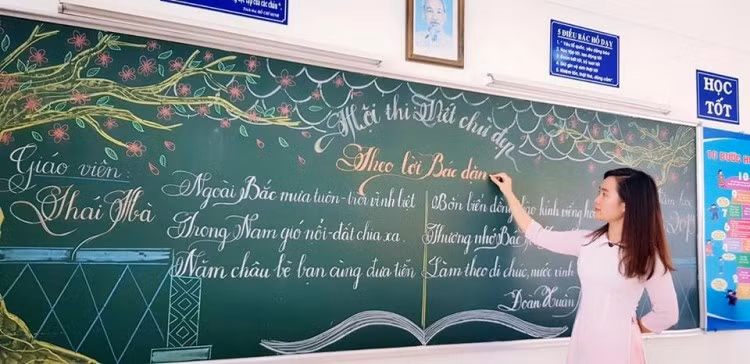 5 ĐIỀU BÁC HỒ DẠY
HỌC
TỐT
10
Hội thi Viết chữ đẹp
Theo lời Bác dặn
Giáo viên:
Thái Hà
Ngoài Bắc mưa tuôn - trời vĩnh biệt
Trong Nam gió nổi - đất chia xa.
Năm châu bè bạn cùng đưa tiễn
Bốn biển đồng bào kính viếng
Thương nhớ Bác
Làm theo di chúc, nước vinh
Đoàn Xuân